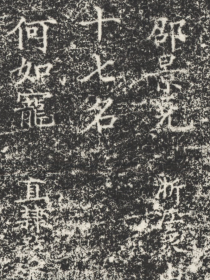 邵景堯 浙江
十七名
何如寵 直隸